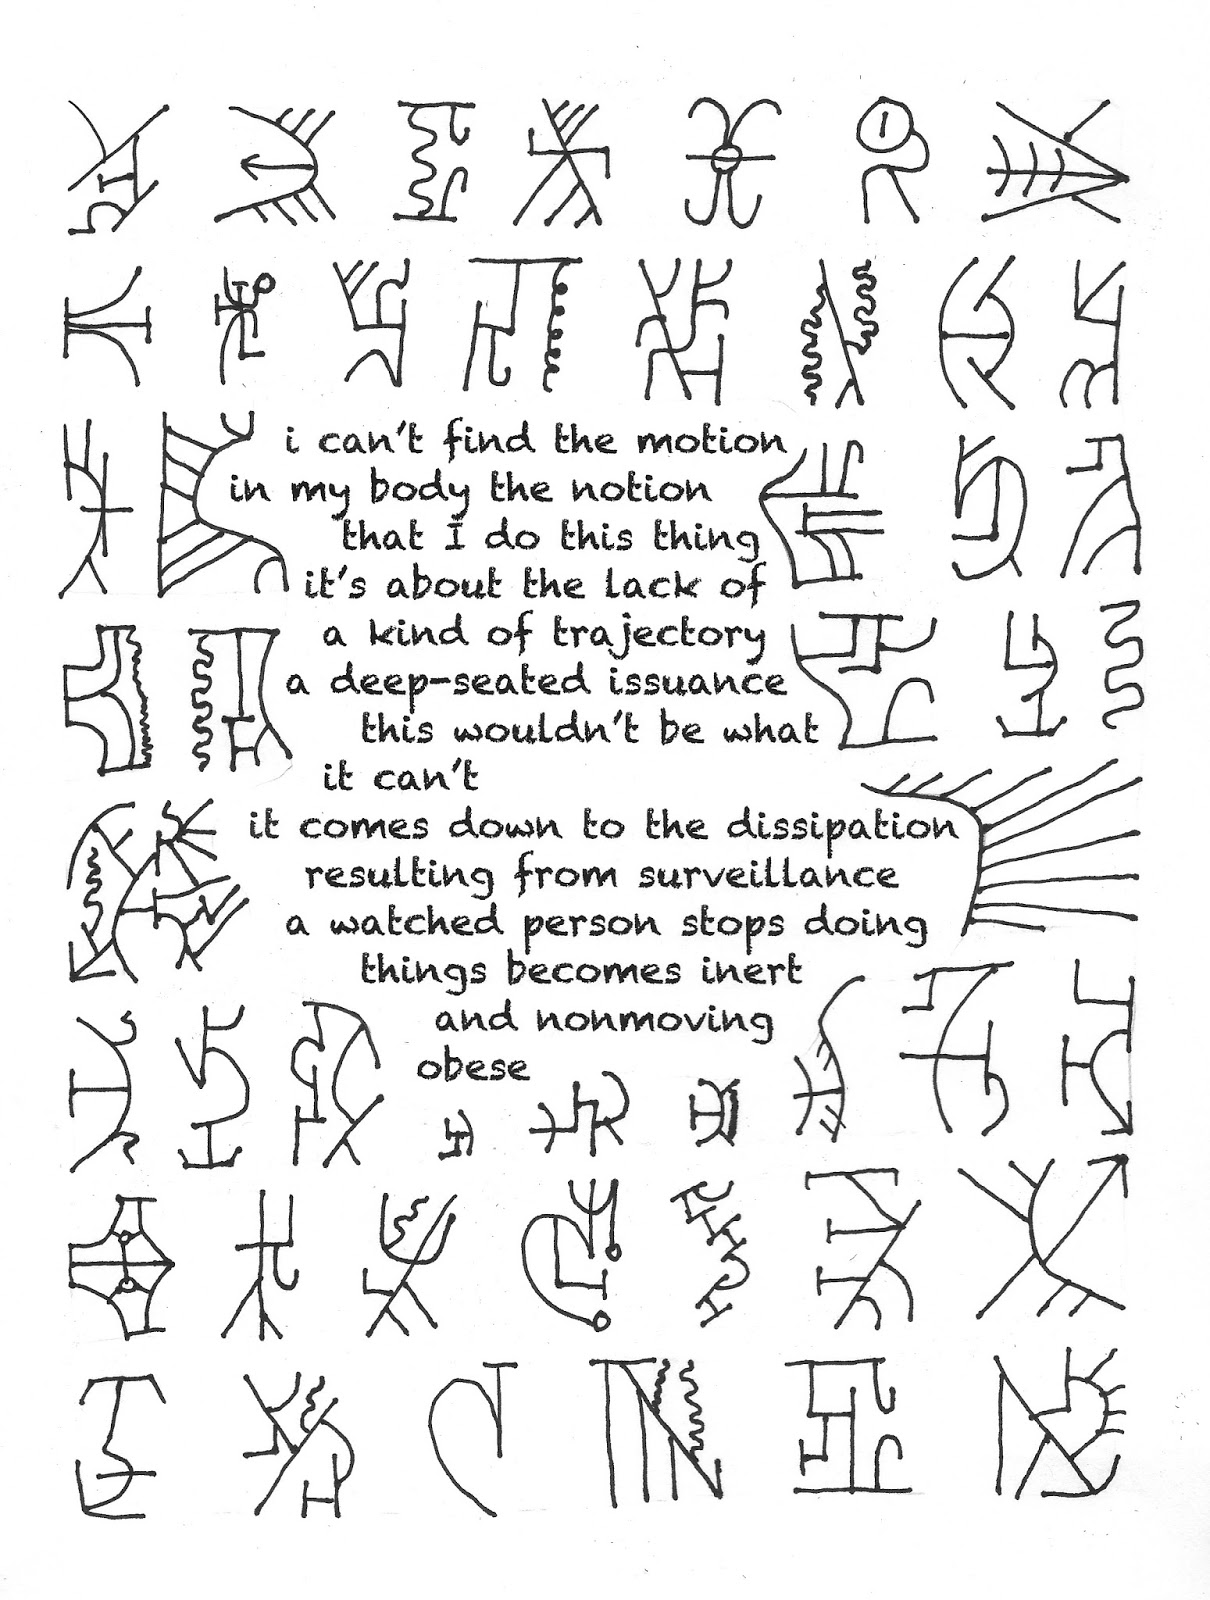 i can't find the motion
in my body the notion
that I do this thing
it's about the lack of
a kind of trajectory
a deep-seated issuance
this wouldn't be what
it can't
it comes down to the dissipation
resulting from surveillance
a watched person stops doing
things becomes inert
and nonmoving
obese